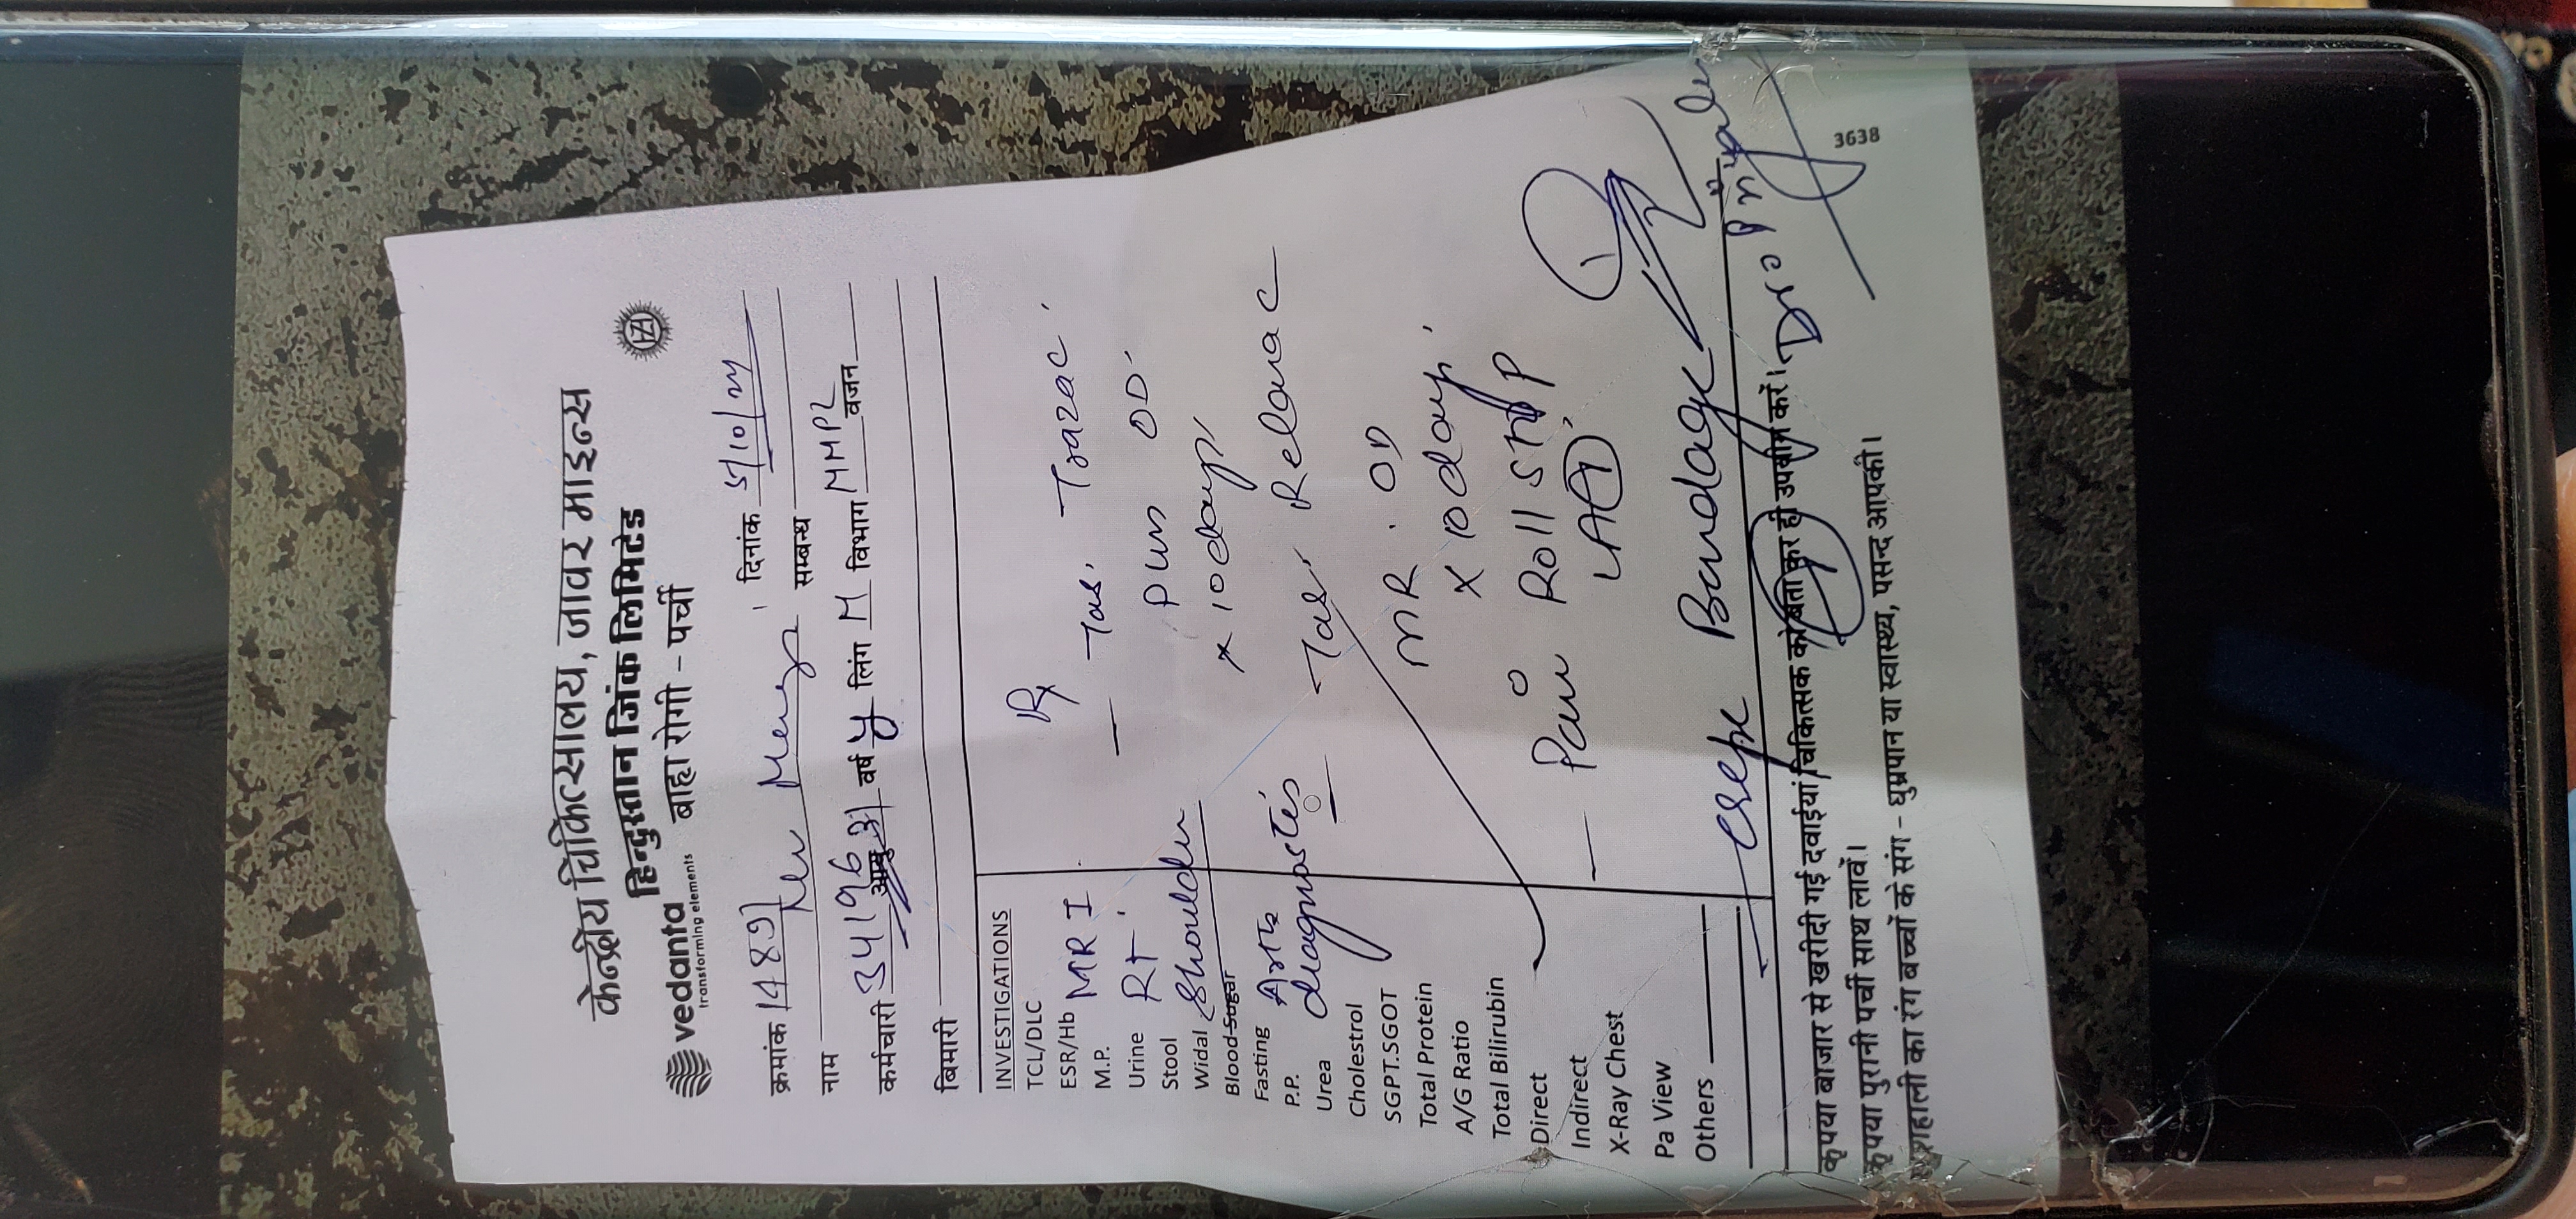 केन्द्रीय चिकित्सालय, जावर माइन्स
हिन्दुस्तान जिंक लिमिटेड
vedanta
transforming elements
बाह्य रोगी - पर्ची
HZL
क्रमांक दिनांक 5/10/24
नाम सम्बन्ध
कर्मचारी 34196 आयु 31 वर्ष लिंग M विभाग MMPL वजन
बिमारी
INVESTIGATIONS
TCL/DLC
ESR/Hb
M.P.
Urine
Stool
Widal
Blood Sugar
Fasting
P.P.
Urea
Cholestrol
SGPT.SGOT
Total Protein
A/G Ratio
Total Bilirubin
Direct
Indirect
X-Ray Chest
Pa View
Others
MRI
RT
Shoulder
diagnostics
Rx
- Tab. Trazac
Plus OD
x 10 days
- Tab. Relanac
MR. OD
x 10 days
- Pain Roll
LA
- Crepe Bandage
कृपया बाजार से खरीदी गई दवाईयां चिकित्सक को बता कर ही उपयोग करें।
कृपया पुरानी पर्ची साथ लावें।
खुशहाली का रंग बच्चों के संग - धुम्रपान या स्वास्थ्य, पसन्द आपकी।
3638